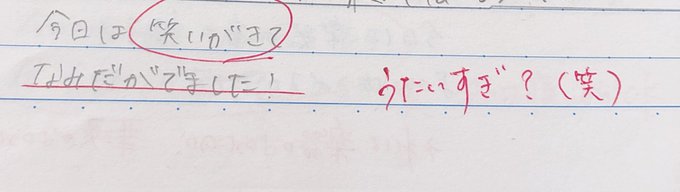 今日は笑いがきて
なみだがでました! うたいすぎ?(笑)